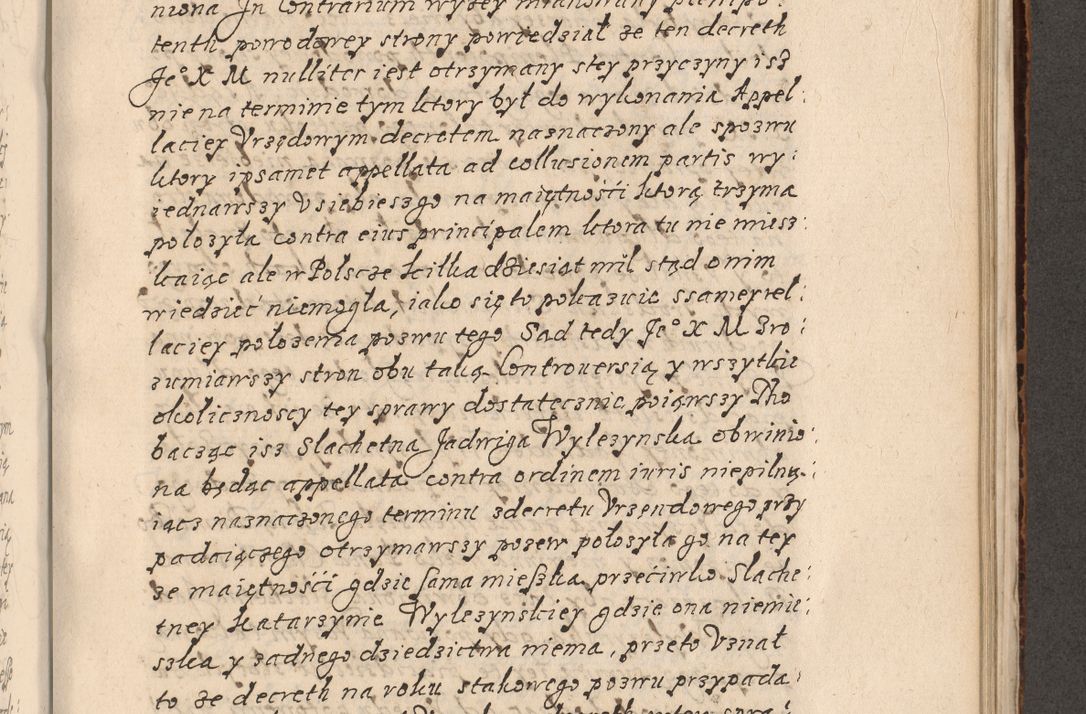 niona In Contrarium wyzey mianowany plenipo:
tenth powodowey strony powiedział ze ten decreth
Je° X M nulliter iest otrzymany stey przyczyny isz
nie na terminie tym ktory był do wykonania Appel:
laciey Vrzędowym decretem naznaczony ale zpozwu
ktory ipsamet appellata ad collusionem partis wy:
iednawszy V siebiesz go na maiętnośći ktorą trzyma
położyła contra eius principalem ktora tu nie miesz:
kaiąc ale w Polscze kilka dziesiąt mil stąd onim
wiedzieć niemogła, iako się to pokazuie ssamey rel:
laciey położenia pozwu tego Sad tedy Je° X M Zro:
zumiawszy stron obu taką Controuersią y wszytkie
okolicznoscy tey sprawy dostatecznie poiąwszy Tho
bacząc isz Slachetna Jadwiga Wylezynska obwinio:
na będąc appellata contra ordinem iuris niepilnu:
iącz naznaczonego terminu zdecretu Vrzendowego przy
padaiączego otrzymawszy pozew położyła go na tey
ze maiętnośći gdzie sama mieszka przećiwko Slache:
tney Katarzynie Wylezynskiey gdzie ona niemie:
szka y zadnego dziedzictwa niema, przeto Vznał
to ze decreth na roku stakowego pozwu przypada: